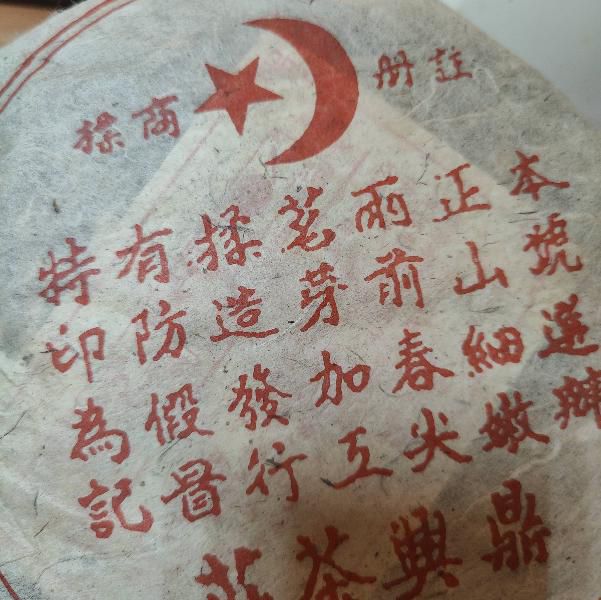 註册
商標
本號選辦
正山細嫩
雨前春尖
茗芽加工
揉造發行
有防假冒
特印為記
鼎興茶莊